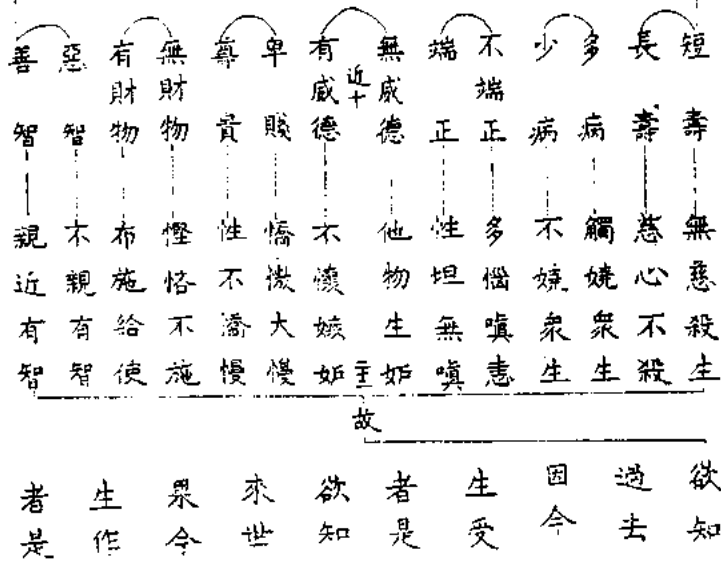 短壽 無慈殺生
長壽 慈心不殺
多病 觸嬈衆生
少病 不嬈衆生
不端正 多惱瞋恚
端正 性坦無瞋
無威德 他物生妬
近十
主
有威德 不懷嫉妬
卑賤 憍慠大慢
尊貴 性不憍慢
無財物 慳悋不施
有財物 布施給使
惡智 不親有智
善智 親近有智
故
欲知
過去
因今
生受
者是
欲知
來世
果今
生作
者是